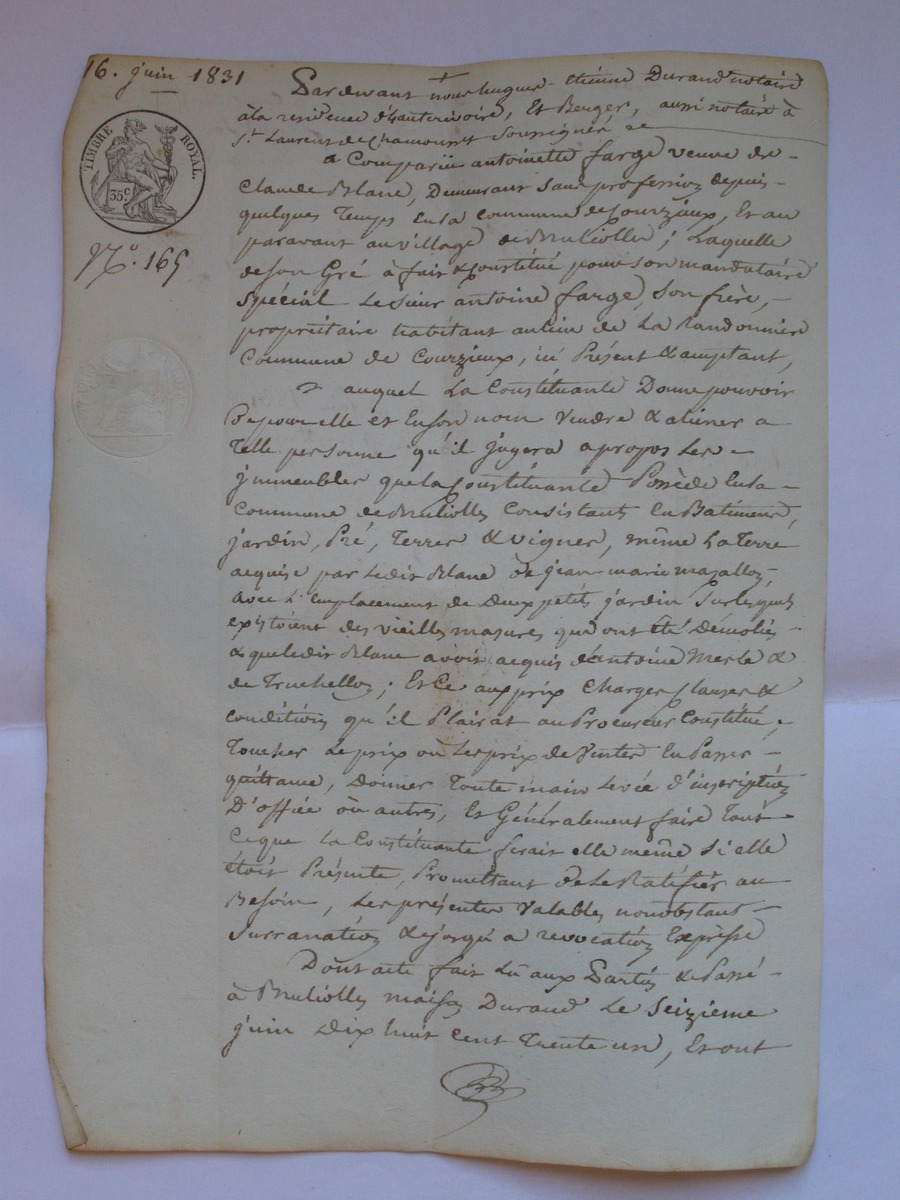 16. juin 1831
TIMBRE ROYAL.
35 c
N.o 165
Pardevant nous hugues-Etienne Durand notaire
à la residence d'hauterivoire, Et Berger, aussi notaire à
St. Laurent de Chamousset Soussignés
a Comparüe antoinette farge veuve de
Claude Blanc, Demeurant Sans profession depuis
quelques Temps En la commune de Courzieux, Et au
paravant au village de Brulliolles; Laquelle
de Son Gré à fait & Constitué pour Son mandataire
Spécial Le Sieur antoine farge, Son frère,
propriétaire habitant au lieu de La Randonnière
Commune de Courzieux, ici Présent & acceptant,
auquel La Constituante Donne pouvoir
De pour elle et En Son nom Vendre & aliéner a
Telle personne qu'il jugera apropos Les
jmmeubles que la Constituante Possède En la
Commune de Brulliolles Consistants En Batiments,
jardin, Pré, Terres & vignes, même La Terre
acquise par Ledit Blanc de jean-marie
avec L'Emplacement de Deux petits jardin Sur lesquels
existoient des vieilles masures qui ont été Démolies
& que ledit Blanc avoit acquis d'antoine Merle &
de Truchelloz; Et Ce aux prix Charges Clauses &
conditions qu'il Plairat au Procureur Constitué.
Toucher Le prix ou Les prix de Ventes En Passer
quittance, Donner Toute main Levée d'inscription
D'office ou autres, Et Généralement faire Tout
Ce que La Constituante ferait elle même Si elle
étoit Présente, Promettant de Le Ratifier au
Besoin, Les présentes Valables nonobstant
Surranation & jusqu'a revocation Expresse
Dont acte fait Lu aux Parties & Passé
à Brulliolles maison Durand Le Seizieme
juin Dix huit Cent Trente un, Et ont